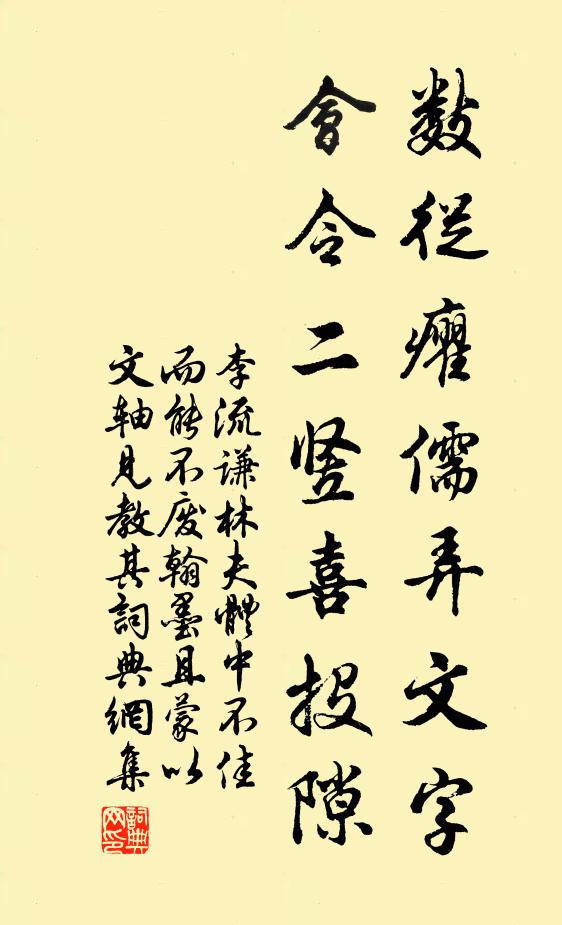 數從癯儒弄文字
會令二竖喜投隙
李流謙林夫體中不佳
而能不废翰墨且蒙以
文軸見教其詞典網集
詞典
网印